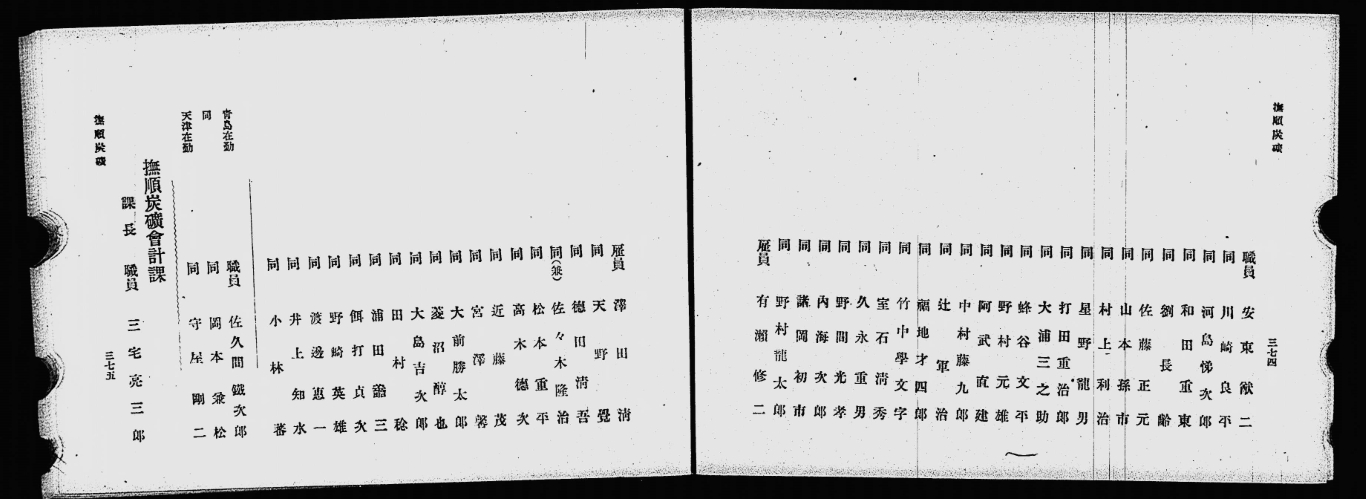 撫順炭礦
三七四
職員 安東猷二
同 川崎良平
同 河島悌次郎
同 和田重東
同 劉長齡
同 佐藤正元
同 山本孫市
同 村上利治
同 星野龍男
同 打田重治郎
同 大浦三之助
同 蜂谷文平
同 野村元雄
同 阿武直建
同 中村藤九郎
同 辻軍治
同 福地才四郎
同 竹中學文字
同 室石清秀
同 久永重男
同 野間光孝
同 內海次郎
同 諸岡初市
同 野村龍太郎
雇員 有瀨修二
雇員 澤田淸
同 天野覺
同 德田淸吾
同(兼) 佐々木隆治
同 松本重平
同 高木德次
同 近藤茂
同 宮澤馨
同 大前勝太郎
同 菱沼醇也
同 大島吉次郎
同 田村稔
同 浦田諭三
同 餌打貞次
同 野崎英雄
同 渡邊惠一
同 井上知水
同 小林蕃
青島在勤 職員 佐久間鐵次郎
同 同 岡本兼松
天津在勤 同 守屋剛二
撫順炭礦會計課
課長 職員 三宅亮三郎
撫順炭礦
三七五